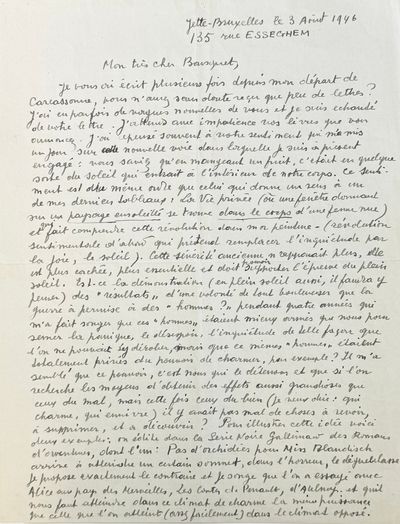 Jette-Bruxelles le 3 Août 1946
135 rue ESSEGHEM
Mon très cher Bousquet,
Je vous ai écrit plusieurs fois depuis mon départ de
Carcassonne, vous n'avez sans doute reçu que peu de lettres ?
J'ai eu parfois de vagues nouvelles de vous et je suis enchanté
de votre lettre. J'attends avec impatience vos livres que vous
annoncez. J'ai pensé souvent à votre sentiment qui m'a mis
un jour sur cette nouvelle voie dans laquelle je suis à présent
engagé : vous saviez qu'en mangeant un fruit, c'était en quelque
sorte du soleil qui entrait à l'intérieur de notre corps. Ce senti-
ment est du même ordre que celui qui donne un sens à un
de mes derniers tableaux : La Vie privée (où une fenêtre donnant
sur un paysage ensoleillé se trouve dans le corps d'une femme nue)
et qui fait comprendre cette révolution dans ma peinture – (révolution
sentimentale d'abord qui prétend remplacer l'inquiétude par
la joie, le soleil). Cette sérénité ancienne n'apparait plus, elle
est plus cachée, plus essentielle et doit supporter l'épreuve du plein
soleil. Est-ce la démonstration (en plein soleil aussi, il faudra y
penser) des "résultats" d'une volonté de tout bouleverser que la
guerre a permise à des "hommes" pendant quatre années qui
m'a fait songer que ces "hommes" étaient mieux armés que nous pour
semer la panique, le désespoir, l'inquiétude de telle façon que
l'on ne pouvait s'y dérober, mais que ce mêmes "hommes" étaient
totalement privés du pouvoir de charmer, par exemple ? Il m'a
semblé que ce pouvoir, c'est nous qui le détenons et que si l'on
recherche les moyens d'obtenir des effets aussi grandioses que
ceux du mal, mais cette fois ceux du bien (je veux dire : qui
charme, qui enivre) il y avait pas mal de choses à revoir,
à supprimer, et à découvrir ? Pour illustrer cette idée voici
deux exemples : on édite dans la Série Noire Gallimard des Romans
d'aventures, dont l'un : Pas d'orchidées pour Miss Blandisch
arrive à atteindre un certain sommet, dans l'horreur, le dégueulasse
Je propose exactement le contraire et je songe que l'on a essayé avec
Alice au pays des Merveilles, les Contes de Perrault, d'Aulnoy, et qu'il
nous faut atteindre dans ce climat de charme la même puissance
que celle que l'on atteint (assez facilement) dans le climat opposé.